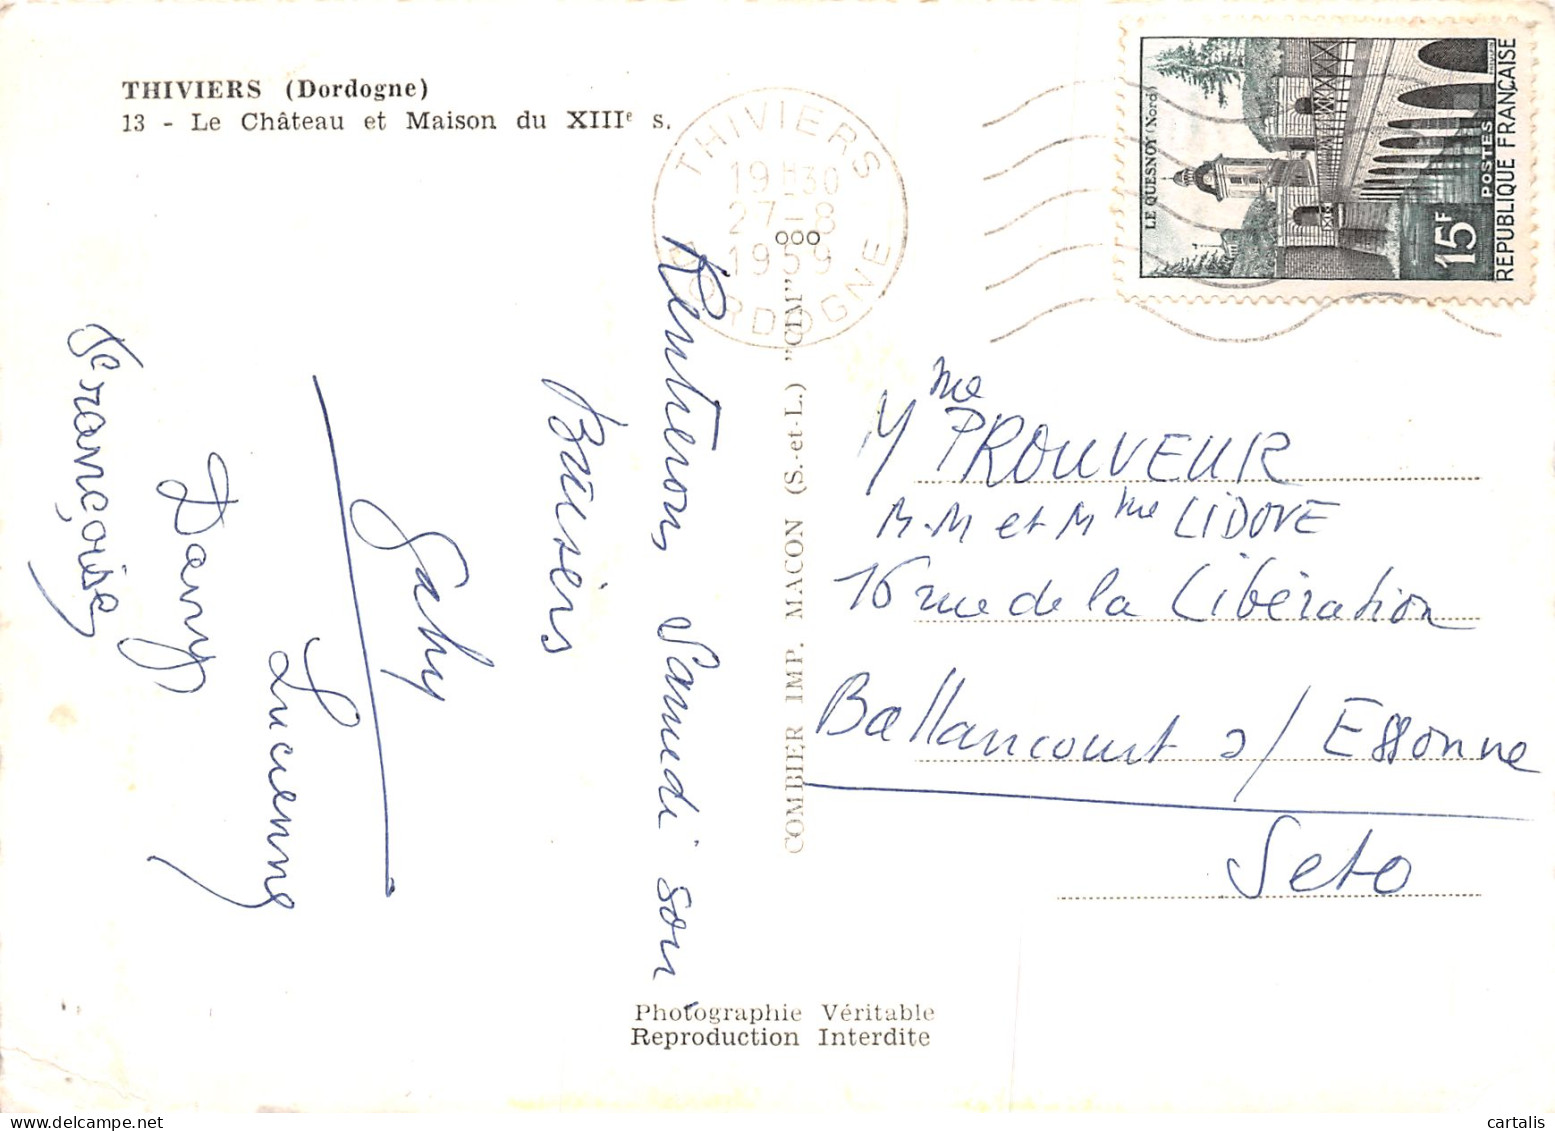 THIVIERS (Dordogne)
13 - Le Château et Maison du XIIIe s.
THIVIERS
19H30
27-8
1959
DORDOGNE
LE QUESNOY (Nord)
15F
POSTES
REPUBLIQUE FRANÇAISE
Rentrerons Samedi soir
Baisers
Gaby
Lucienne
Dany
Françoise
COMBIER IMP. MACON (S.-et-L.) "CIM"
Mme PROUVEUR
M.M et Mme LIDOVE
16 rue de la Libération
Ballancourt s/ Essonne
Seto
Photographie Véritable
Reproduction Interdite
cartalis